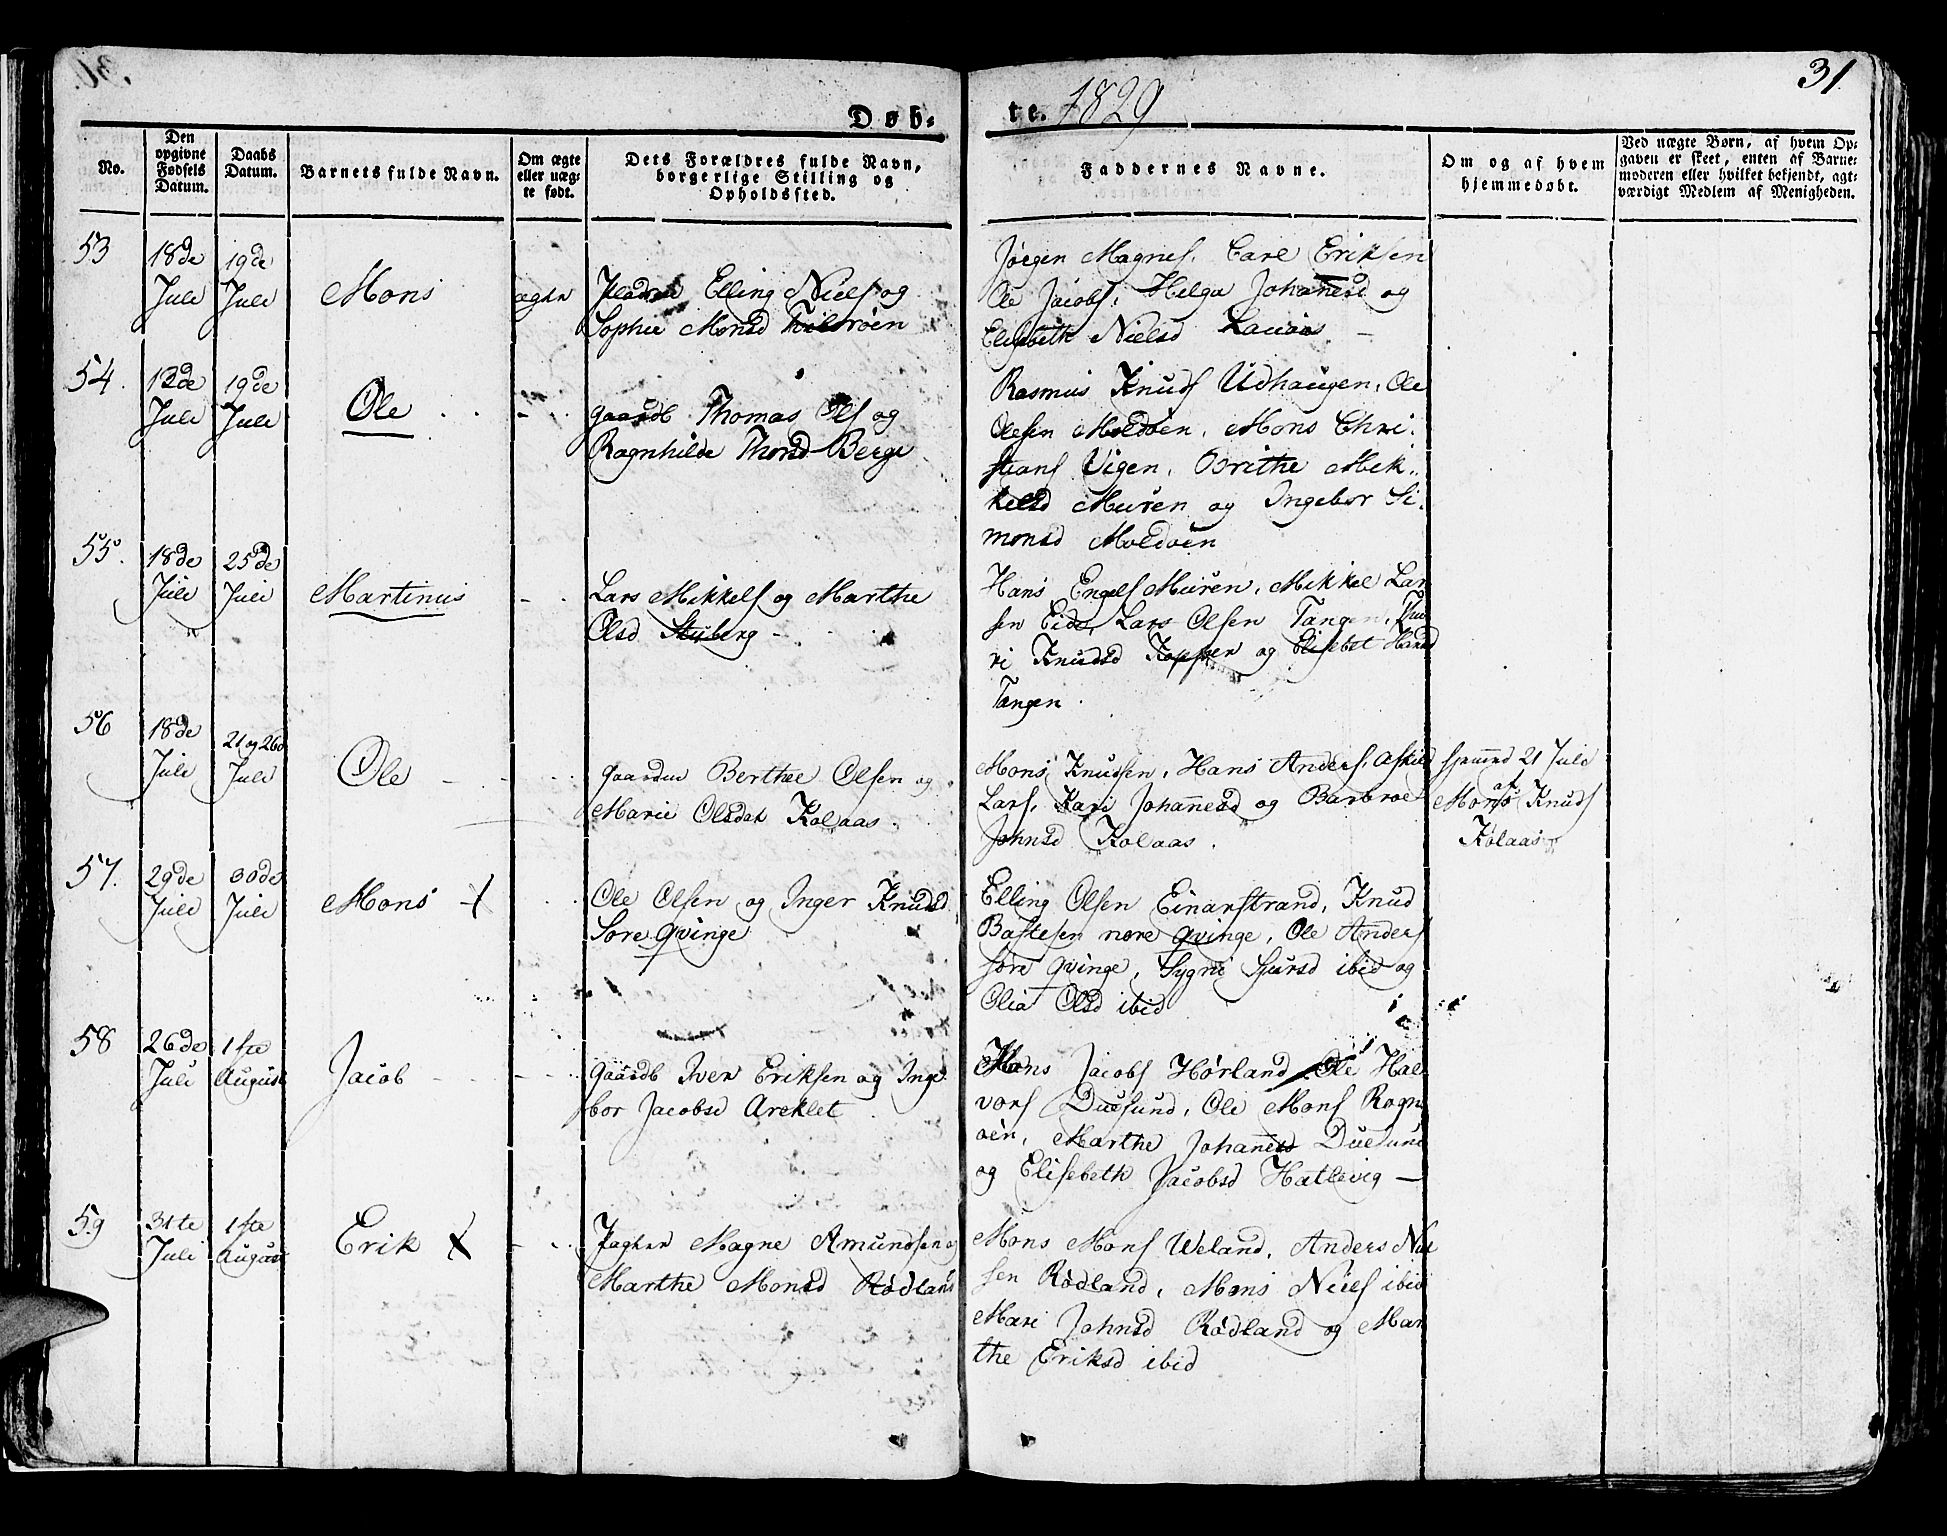 31.
Døb-
te. 1829
No.
Den opgivne Fødsels Datum.
Daabs Datum.
Barnets fulde Navn.
Om ægte eller uæg-
te født.
Dets Forældres fulde Navn,
borgerlige Stilling og
Opholdssted.
Faddernes Navne.
Om og af hvem
hjemmedøbt.
Ved uægte Børn, af hvem Op-
gaven er skeet, enten af Barne-
moderen eller hvilket bekjendt, agt-
værdigt Medlem af Menigheden.
53
18de
Juli
19de
Juli
Mons
ægte
Elling Niels og
Sophie Monsd
Jørgen Magnes. Carl Eriksen
Ole Jacobs, Helga Johanesd og
Elisebeth Nielsd
54.
12de
Juli
19de
Juli
Ole
-
gaardb Thomas Ols og
Ragnhilde Thomd Berge
Rasmus Knuds Udhaugen, Ole
Olesen Moldøen, Mons Chri-
stians Vigen, Brithe Mik-
kelsd Muren og Ingebor Si-
monsd Moldøen
55.
18de
Juli
25de
Juli
Martinus
-
Lars Mikkels og Marthe
Olsd Styberg -
Hans Engels Muren, Mikkel Lar
sen Eide, Lars Olsen Tangen, Thu
ri Knudsd og Elisebet Hansd
Tangen.
56
18de
Juli
21 og 26de
Juli
Ole
Gaardm Berthel Olsen og
Marie Olsdat Kolaas.
Mons Knudsen, Hans Anders. Askild
Lars, Kari Johannesd og Barbroe
Johnsd Kolaas.
hjemmd 21 Juli
af
Mons Knuds
Kolaas
57.
29de
Juli
30de
Juli
Mons +
Ole Olsen og Inger Knudsd
Søre Qvinge
Elling Olsen Einarstrand, Knud
Bastesen nore Qvinge, Ole Anders
søre Qvinge, Sygni Sjursd ibid og
Olia Olsd ibid
58
26de
Juli
1ste
August
Jacob
Gaardb Iver Eriksen og Inge
bor Jacobsd Areklet.
Mons Jacobs Hørland, Ole Hal
vors Duesund, Ole Mons Rogn
øen, Marthe Johanesd Duesund
og Elisebeth Jacobsd Hatlevig -
59
31te
Juli
1ste
August
Erik X
Magne Amundsen og
Marthe Monsd Rødland
Mons Mons Weland, Anders Niel
sen Rødland, Mons Niels ibid
Mari Johnsd Rødland og Mar
the Eriksd ibid